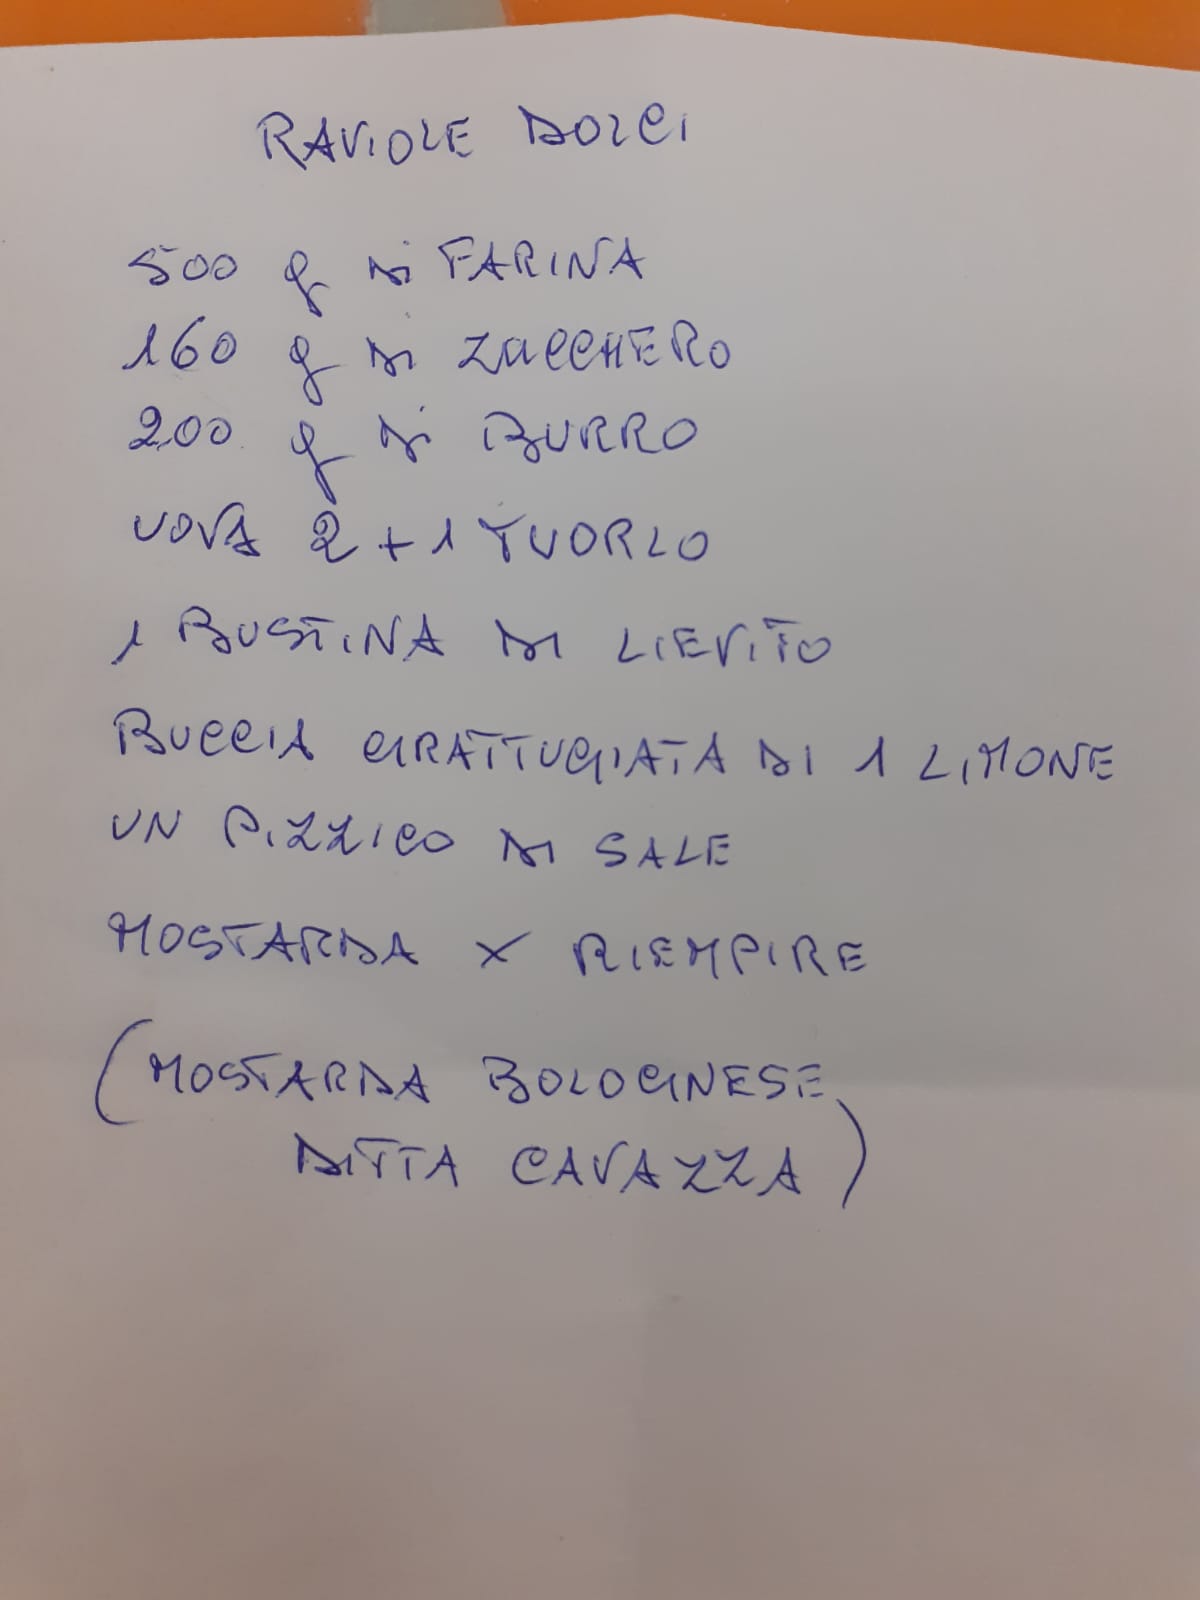 RAVIOLE DOLCI
500 g di FARINA
160 g di ZUCCHERO
200 g di BURRO
UOVA 2 + 1 TUORLO
1 BUSTINA DI LIEVITO
BUCCIA GRATTUGIATA DI 1 LIMONE
UN PIZZICO DI SALE
MOSTARDA X RIEMPIRE
(MOSTARDA BOLOGNESE
DITTA CAVAZZA)